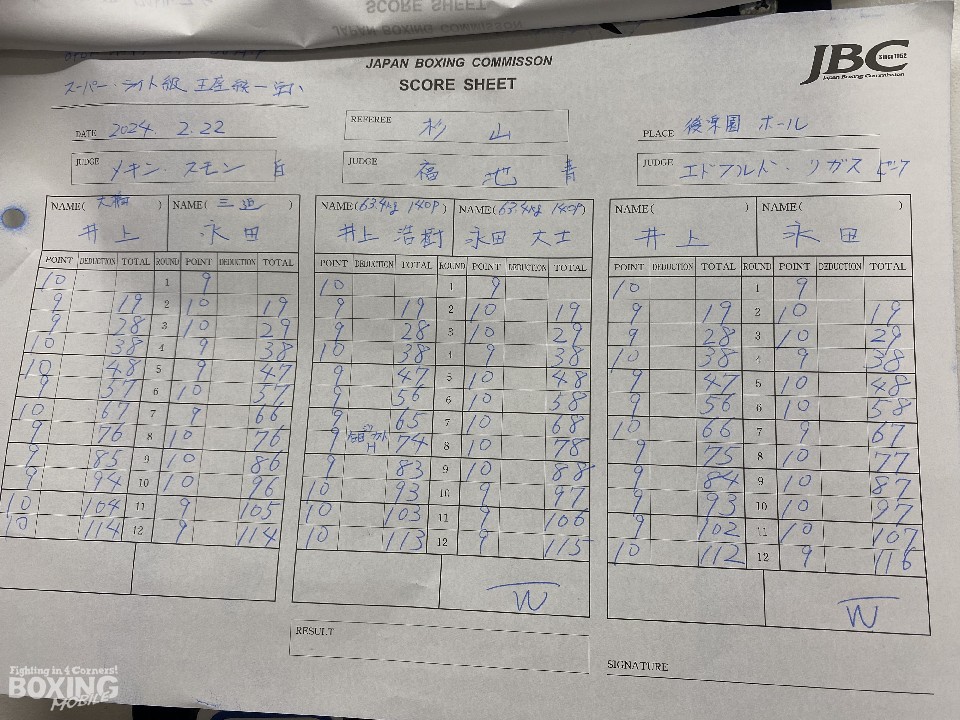 SCORE SHEET
JAPAN BOXING COMMISSON
JAPAN BOXING COMMISSON
SCORE SHEET
JBC Since 1952
Japan Boxing Commission
スーパー・ライト級 王座統一戦
DATE 2024. 2.22
REFEREE 杉山
PLACE 後楽園ホール
JUDGE メキン・スモン 白
JUDGE 福地 青
JUDGE エドアルド・リガス ピンク
NAME(大橋) NAME(三迫)
井上 永田
POINT DEDUCTION TOTAL ROUND POINT DEDUCTION TOTAL
10 1 9
9 19 2 10 19
9 28 3 10 29
10 38 4 9 38
10 48 5 9 47
9 57 6 10 57
10 67 7 9 66
9 76 8 10 76
9 85 9 10 86
9 94 10 10 96
10 104 11 9 105
10 114 12 9 114
NAME(63.4kg 140P) NAME(63.4kg 140P)
井上 浩樹 永田 大士
POINT DEDUCTION TOTAL ROUND POINT DEDUCTION TOTAL
10 1 9
9 19 2 10 19
9 28 3 10 29
10 38 4 9 38
9 47 5 10 48
9 56 6 10 58
9 65 7 10 68
9 74 8 10 78
9 83 9 10 88
10 93 10 9 97
10 103 11 9 106
10 113 12 9 115
W
NAME( ) NAME( )
井上 永田
POINT DEDUCTION TOTAL ROUND POINT DEDUCTION TOTAL
10 1 9
9 19 2 10 19
9 28 3 10 29
10 38 4 9 38
9 47 5 10 48
9 56 6 10 58
10 66 7 9 67
9 75 8 10 77
9 84 9 10 87
9 93 10 10 97
9 102 11 10 107
10 112 12 9 116
W
RESULT
SIGNATURE
Fighting in 4 Corners!
BOXING
MOBILE